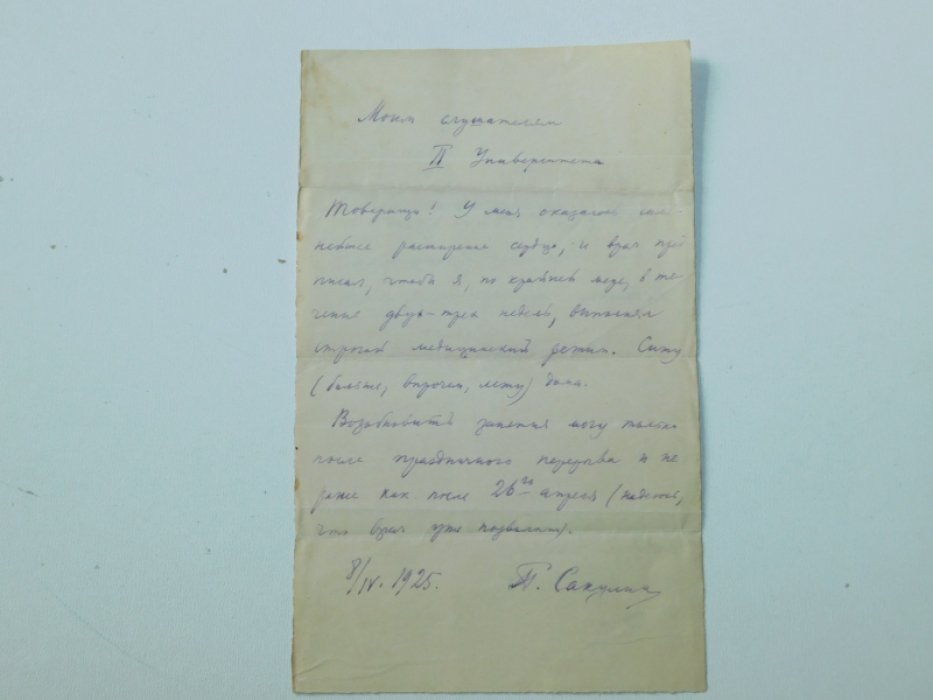 Моим слушателям
II Университета
Товарищи! У меня оказалось силь-
нейшее расширение сердца, и врач пред
писал, чтобы я, по крайней мере, в те-
чение двух-трех недель, выполнял
строгий медицинский режим. Сижу
(больше, впрочем, лежу) дома.
Возобновить занятия могу только
после праздничного перерыва и не
ранее как после 26го апреля (надеюсь,
что врач уже позволит).
8/IV. 1925. П. Сакулин